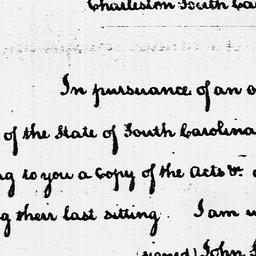 Charleston South Ca
In pursuance of an o
of the State of South Carolina
g to you a Copy of the Acts &c
g their last sitting. I am
(signed) John